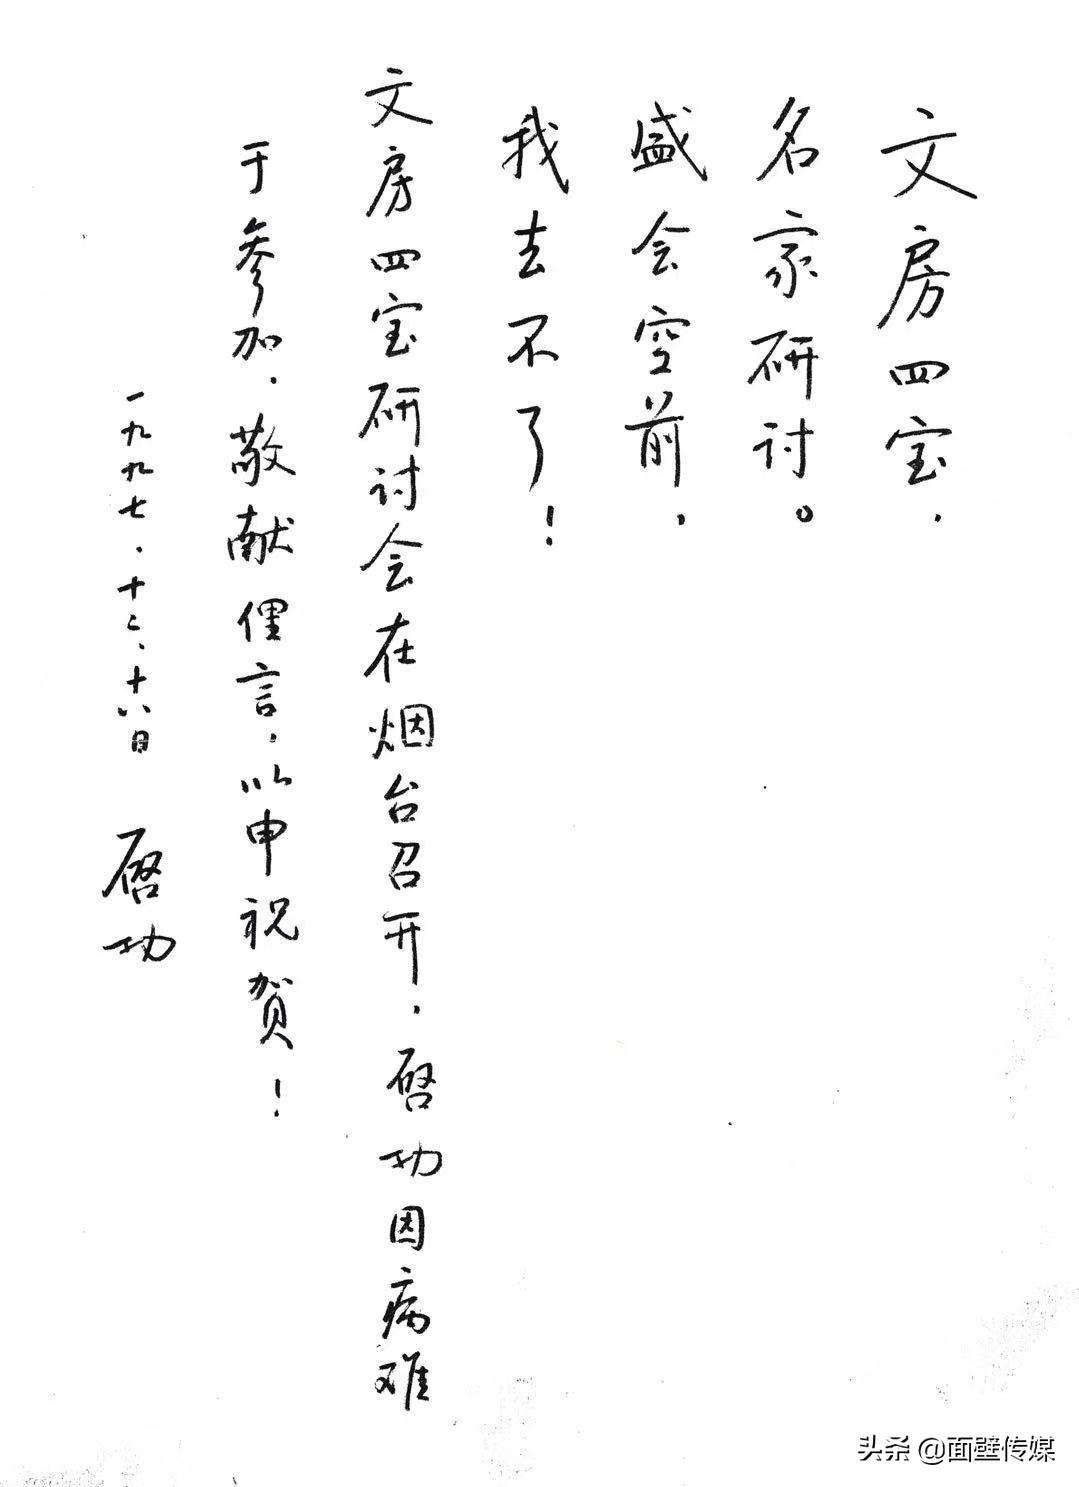 文房四宝，
名家研讨。
盛会空前，
我去不了！
文房四宝研讨会在烟台召开，启功因病难
于参加，敬献俚言，以申祝贺！
一九九七、十二、十八日 启功
头条 @面壁传媒